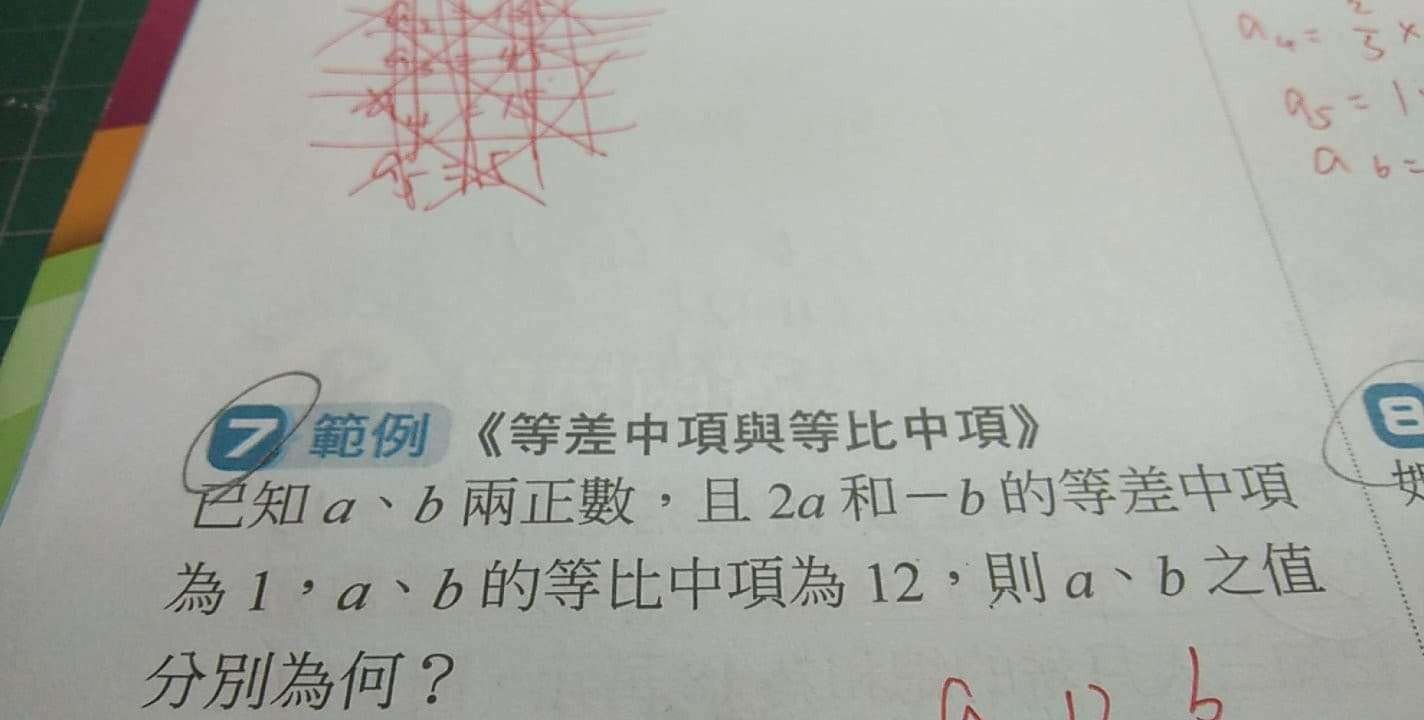 a₄ = 2/3 ×
a₅ = 1
a₆ =
a₅ =
7 範例 《等差中項與等比中項》
8
已知 a、b 兩正數，且 2a 和－b 的等差中項
為 1，a、b 的等比中項為 12，則 a、b 之值
分別為何？
a 12 b